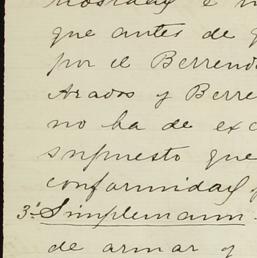 que antes de
por el Berrend
Arados y Berre
no ha de exc
supuesto que
conformidad
3ª Simplemam
de armar y